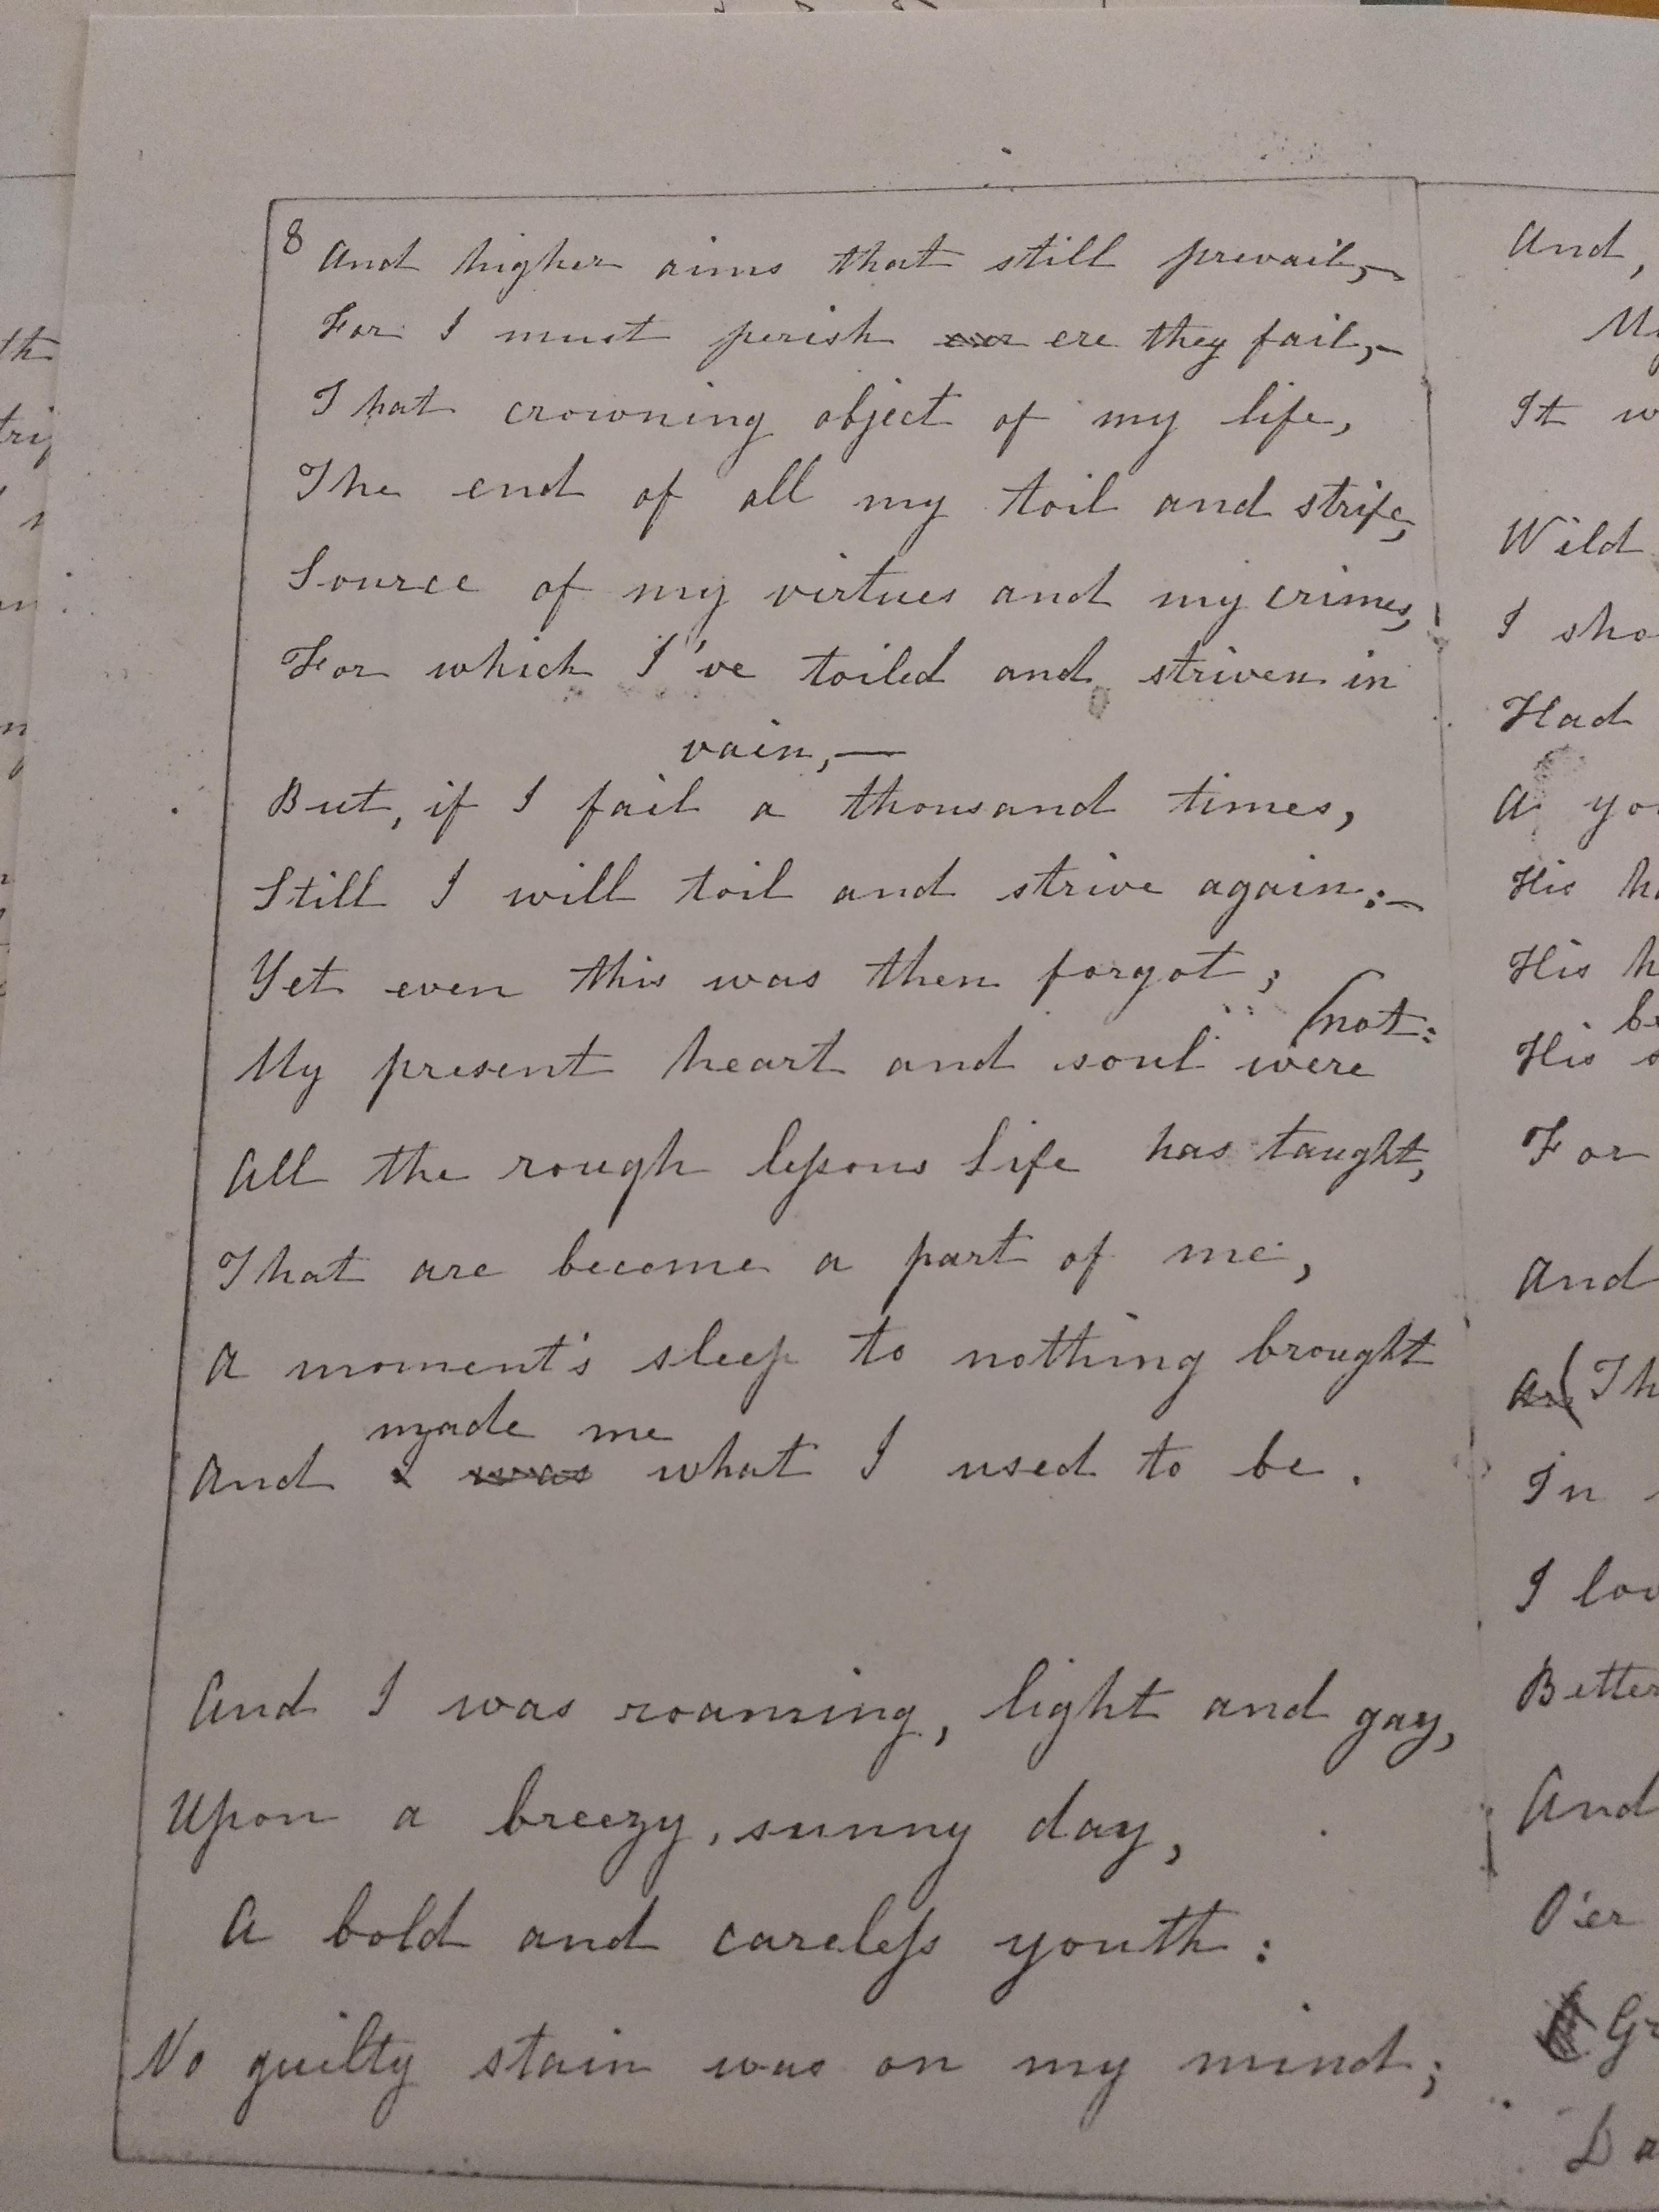 8 And higher aims that still prevail,—
For I must perish ere they fail,—
That crowning object of my life,
The end of all my toil and strife,
Source of my virtues and my crimes,
For which I've toiled and striven in
vain,—
But, if I fail a thousand times,
Still I will toil and strive again:—
Yet even this was then forgot;
(not:
My present heart and soul were
All the rough leſsons life has taught,
That are become a part of me,
A moment's sleep to nothing brought
made me
And I was what I used to be.
And I was roaming, light and gay,
Upon a breezy, sunny day,
A bold and careleſs youth:
No guilty stain was on my mind;
And,
It
Wild
I
Had
A
His
His
His
For
And
In
I
Better
And
O'er